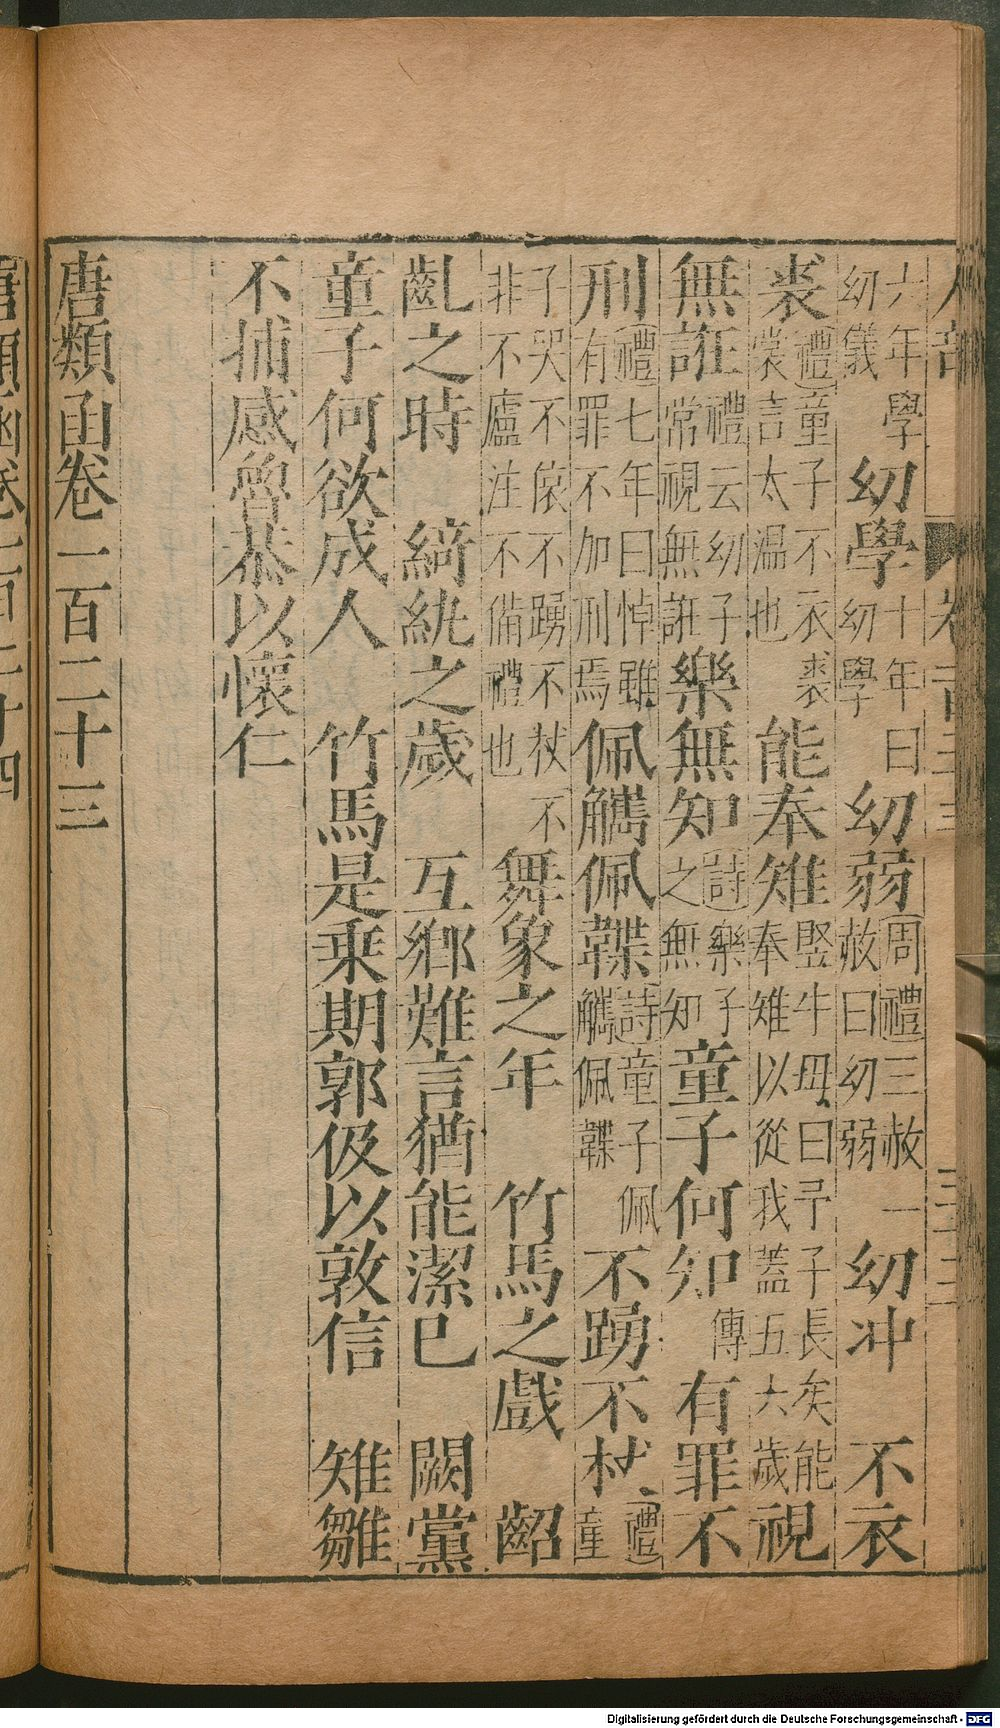 六年學幼儀　幼學十年曰幼學　幼弱周禮三赦一赦曰幼弱　幼冲　不衣
裘禮童子不衣裘裳言太温也　能奉雉豎牛母曰予子長矣能奉雉以從我蓋五六歲　視
無誑禮云幼子常視無誑　樂無知詩樂子之無知　童子何知傳　有罪不
刑禮七年曰悼雖有罪不加刑焉　佩觿佩韘詩童子佩觿佩韘　不踴不杖禮童
子哭不哀不踴不杖不非不廬注不備禮也　舞象之年　竹馬之戲　齠
齓之時　綺紈之歲　互郷難言猶能潔己　闕黨
童子何欲成人　竹馬是乗期郭伋以敦信　雉雛
不捕感魯恭以懷仁
唐類函卷一百二十三
唐類函卷一百二十四
Digitalisierung gefördert durch die Deutsche Forschungsgemeinschaft - DFG